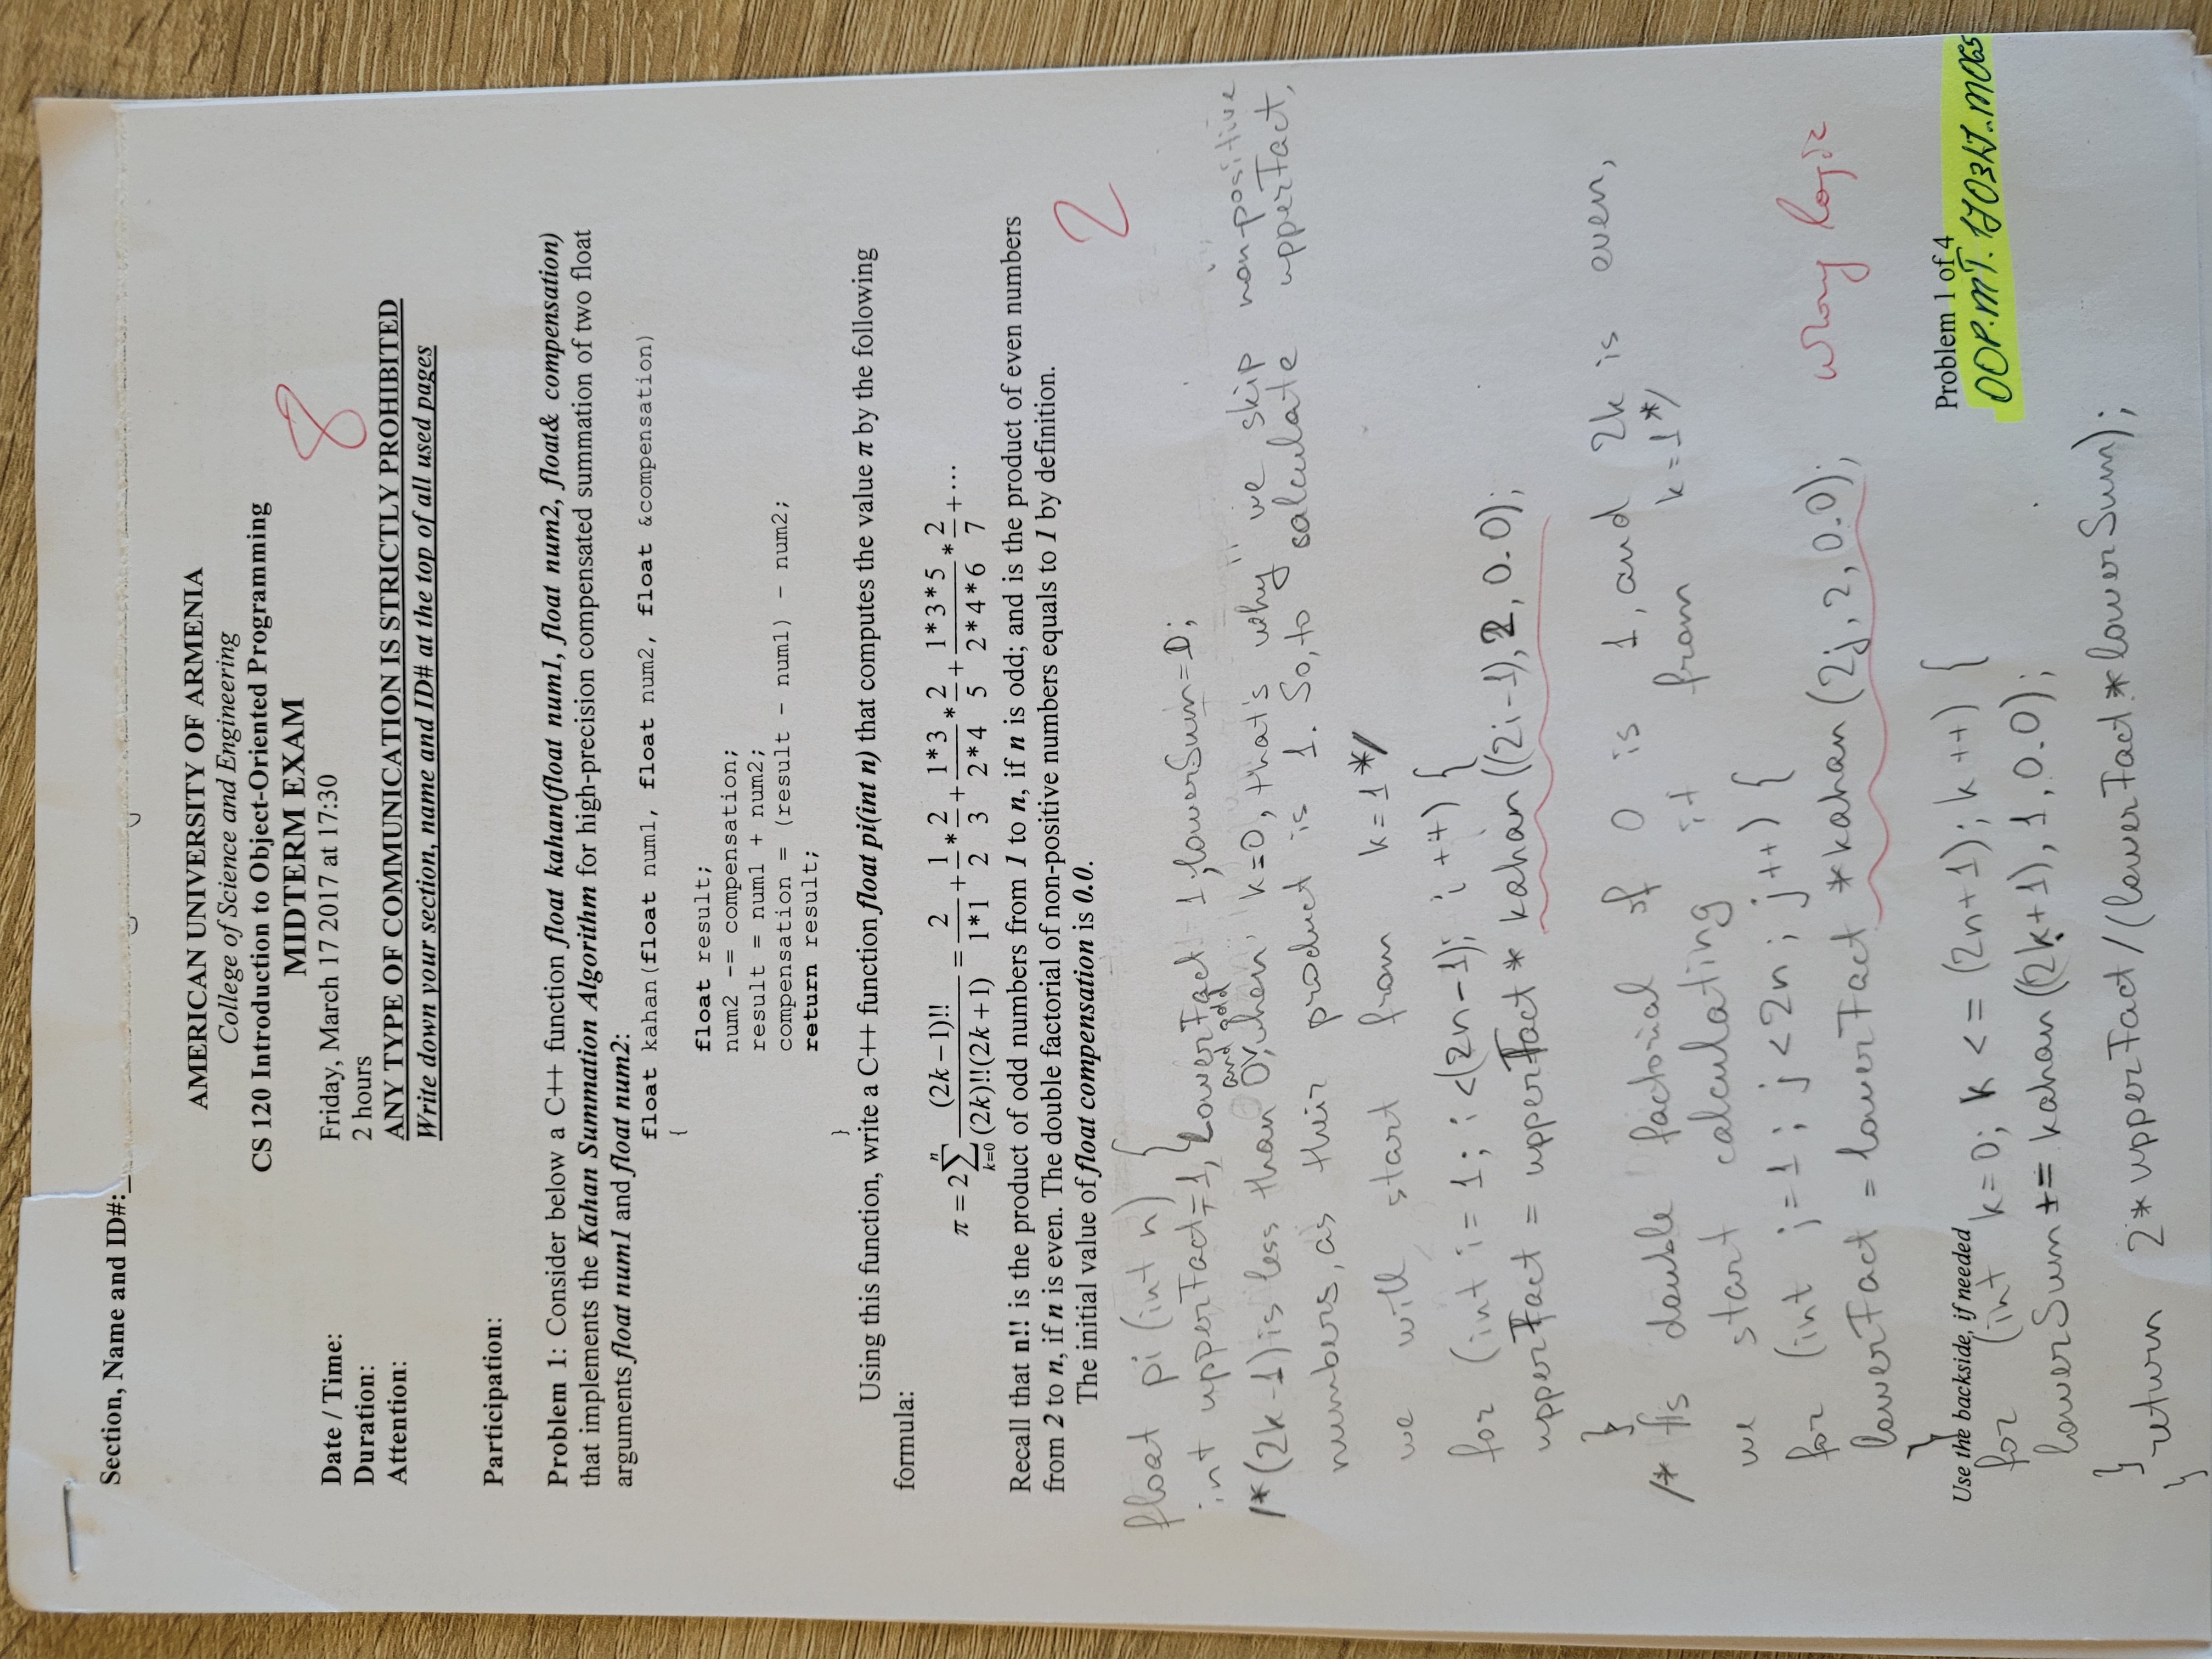 Section, Name and ID#:_
AMERICAN UNIVERSITY OF ARMENIA
College of Science and Engineering
CS 120 Introduction to Object-Oriented Programming
MIDTERM EXAM
8
Date / Time: Friday, March 17 2017 at 17:30
Duration: 2 hours
Attention: ANY TYPE OF COMMUNICATION IS STRICTLY PROHIBITED
Write down your section, name and ID# at the top of all used pages
Participation:
Problem 1: Consider below a C++ function float kahan(float num1, float num2, float& compensation)
that implements the Kahan Summation Algorithm for high-precision compensated summation of two float
arguments float num1 and float num2:
float kahan(float num1, float num2, float &compensation)
{
float result;
num2 -= compensation;
result = num1 + num2;
compensation = (result - num1) - num2;
return result;
}
Using this function, write a C++ function float pi(int n) that computes the value π by the following
formula:
π = 2 ∑_{k=0}^{n} (2k−1)!! / ((2k)!!(2k+1)) = 2/(1*1) + 1/2 * 2/3 + (1*3)/(2*4) * 2/5 + (1*3*5)/(2*4*6) * 2/7 + ⋯
Recall that n!! is the product of odd numbers from 1 to n, if n is odd; and is the product of even numbers
from 2 to n, if n is even. The double factorial of non-positive numbers equals to 1 by definition.
The initial value of float compensation is 0.0.
2
float pi (int n) {
int upperFact=1, LowerFact 1; lowerSum=0;
and odd
/*(2k-1) is less than 0, when k=0, that's why we skip non-positive
numbers, as their product is 1. So, to calculate upperFact,
we will start from k=1*/
for (int i=1; i<(2n-1); i++) {
upperFact = upperFact * kahan((2i-1), 2, 0.0);
}
/* As double factorial of 0 is 1, and 2k is even,
we start calculating it from k=1*/
for (int j=1; j<2n; j++) {
lowerFact = lowerFact *kahan(2j, 2, 0.0); wrong logic
}
Use the backside, if needed
Problem 1 of 4
for (int k=0; k <= (2n+1); k++) {
OOP.MT.170317.M065
lowerSum += kahan((2k+1), 1, 0.0);
}
return 2*upperFact/(lowerFact*lowerSum);
}